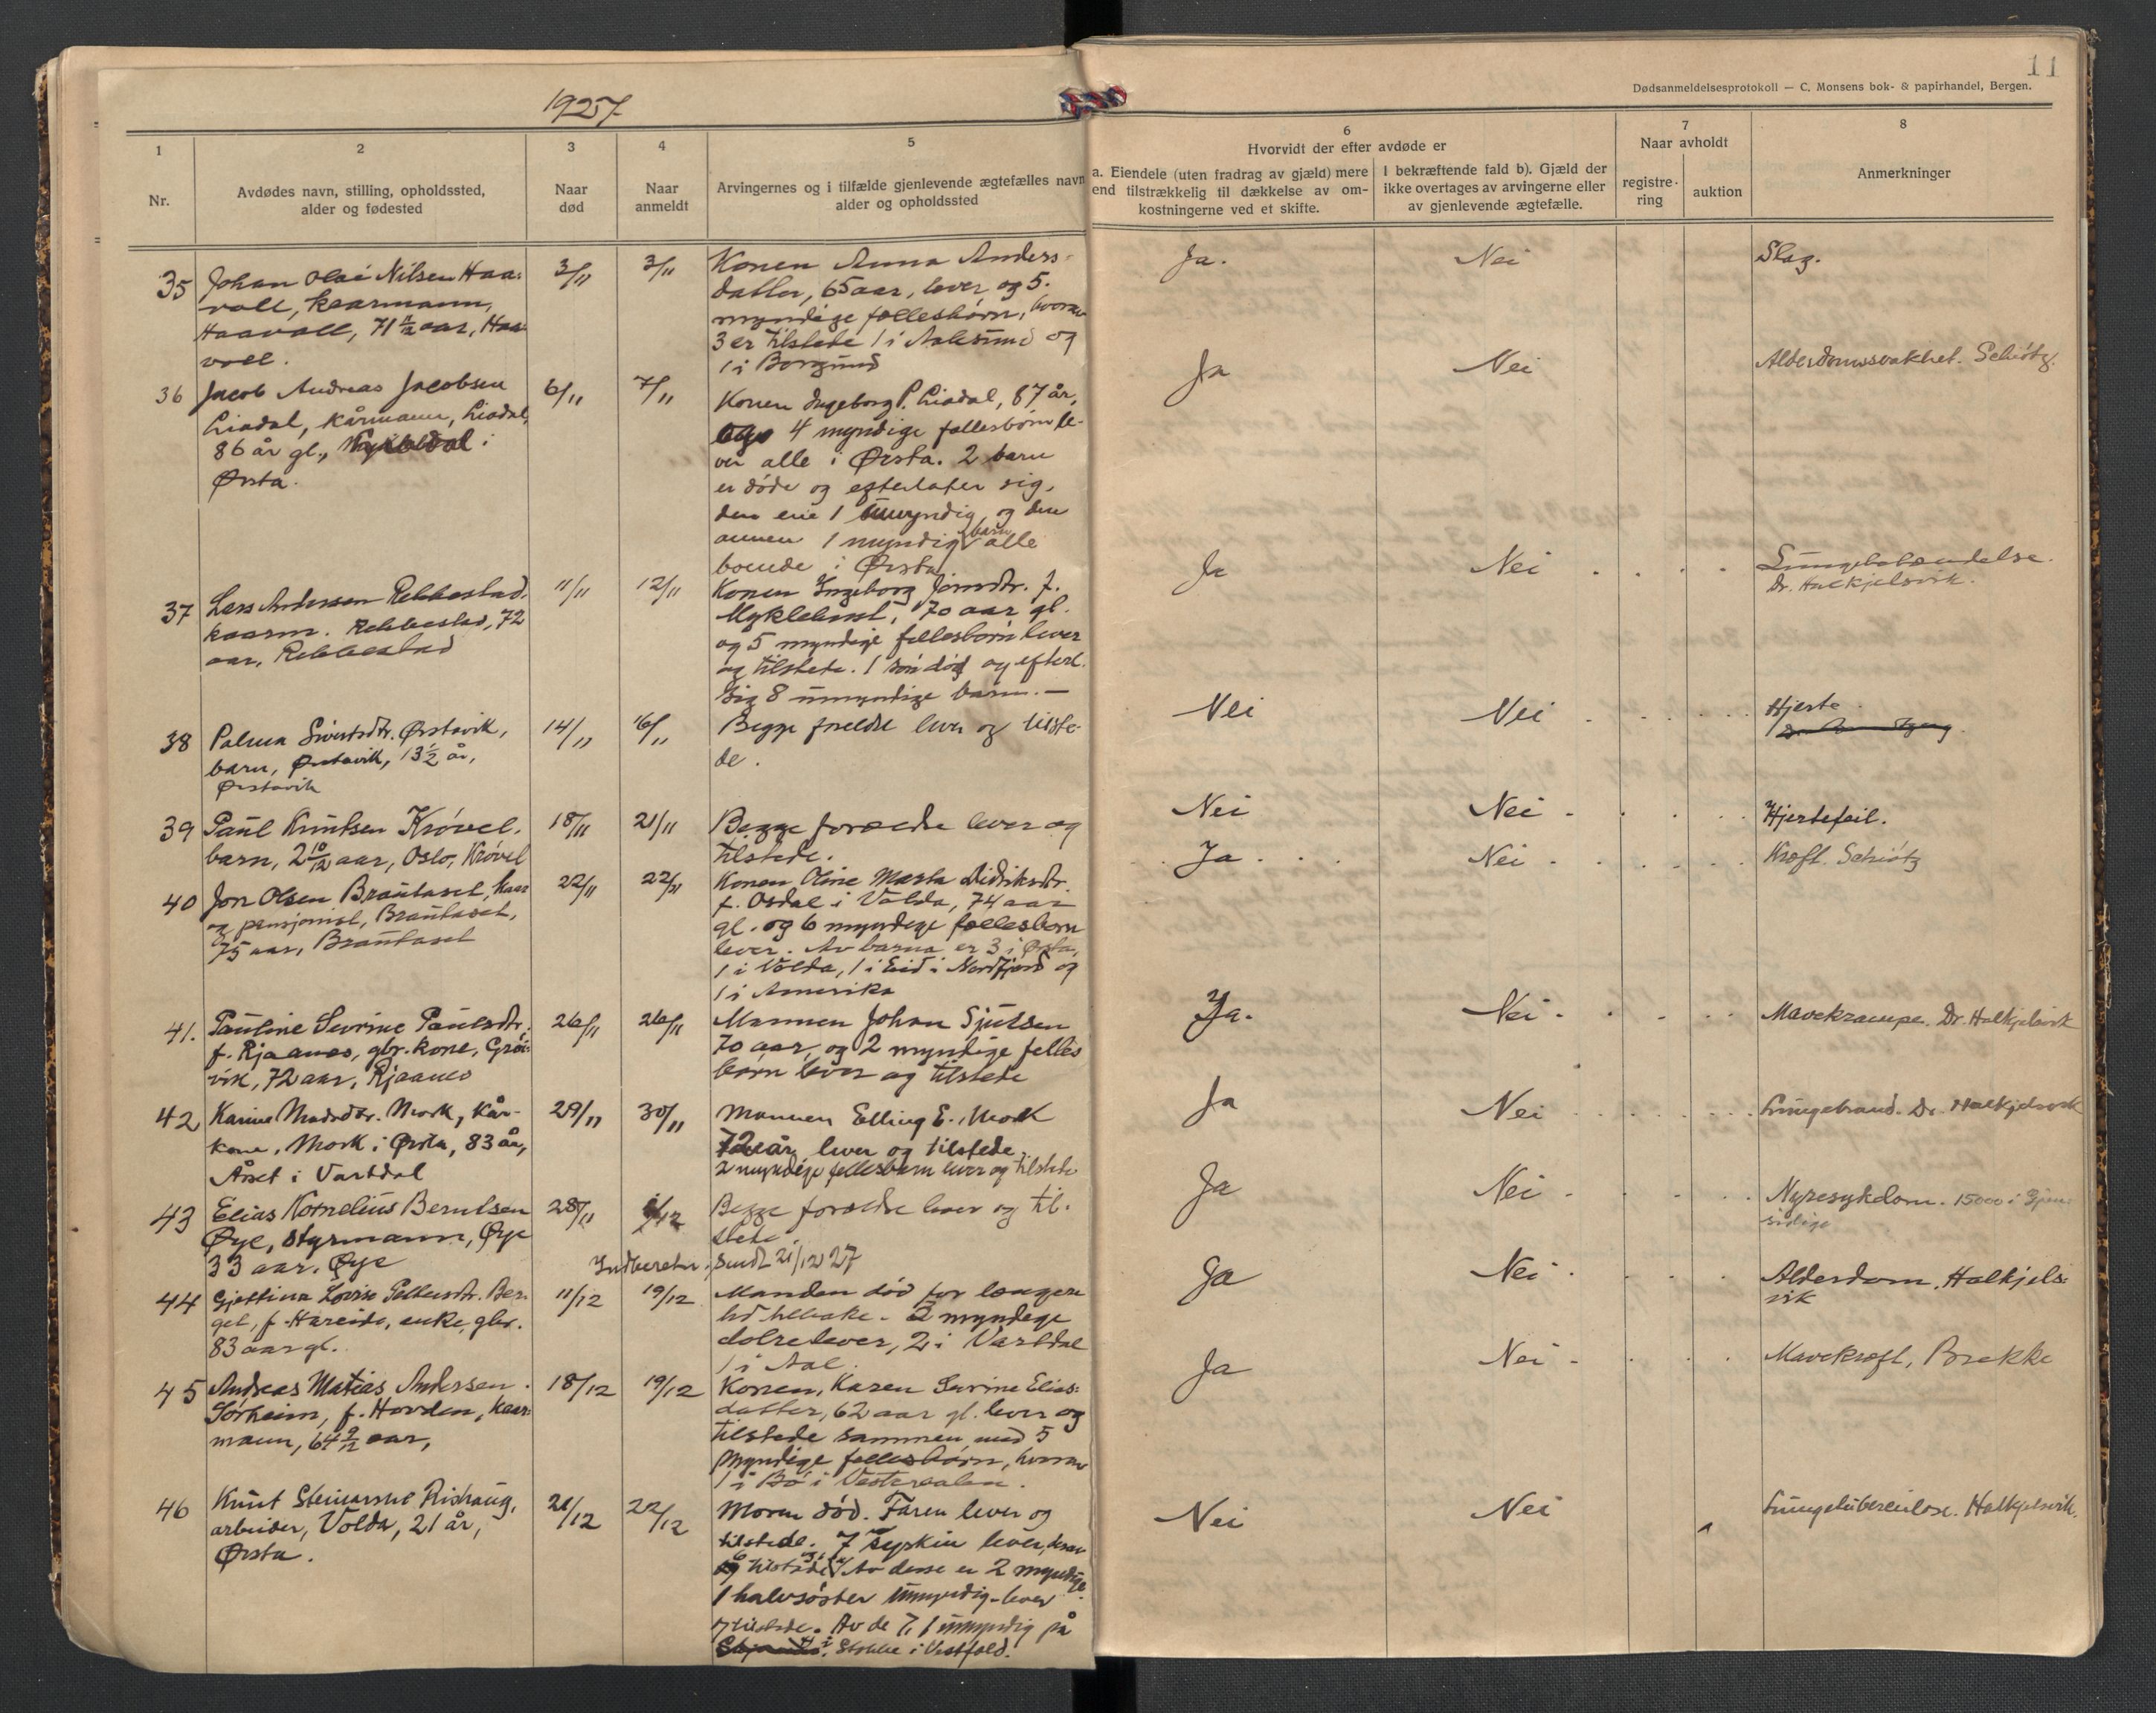 11
Dødsanmeldelsesprotokoll — C. Monsens bok- & papirhandel, Bergen.
1927
1
Nr.
2
Avdødes navn, stilling, opholdssted,
alder og fødested
3
Naar
død
4
Naar
anmeldt
5
Arvingernes og i tilfælde gjenlevende ægtefælles navn
alder og opholdssted
6
Hvorvidt der efter avdøde er
a. Eiendele (uten fradrag av gjæld) mere
end tilstrækkelig til dækkelse av om-
kostningerne ved et skifte.
I bekræftende fald b). Gjæld der
ikke overtages av arvingerne eller
av gjenlevende ægtefælle.
7
Naar avholdt
registre-
ring
auktion
8
Anmerkninger
35
Johan Olai Nilsen Haa-
voll, kaarmann,
Haavoll, 71 11/12 aar, Haa-
voll.
3/11
3/11
Konen Anna Anders-
datter, 65 aar, lever og 5
myndige fællesbørn, hvorav
3 er tilstede 1 i Aalesund og
1 i Borgund
Ja.
Nei
Slag.
36
Jacob Andreas Jacobsen
Liadal, kårmann, Liadal,
86 år gl., i
Ørsta.
6/11
7/11
Konen Ingeborg P. Liadal, 87 år,
4 myndige fællesbørn le-
ver alle i Ørsta. 2 barn
er døde og efterlater sig,
den ene 1 umyndig, og den
annen 1 myndig barn alle
boende i Ørsta
Ja
Nei
Alderdomssvakhet. Schiøtz.
37
Lars Andersen Rebbestad,
kaarm. Rebbestad, 72
aar, Rebbestad
11/11
12/11
Konen Ingeborg Jonsdtr. f.
Myklebust, 70 aar gl.
og 5 myndige fellesbørn lever
og tilstede. 1 søn død og efterl.
sig 8 umyndige barn. —
Ja
Nei
Lungebetændelse.
Dr. Halkjelsvik.
38
Palma Sivertsdtr. Ørstavik,
barn, Ørstavik, 13 1/2 år,
Ørstavik
14/11
16/11
Begge foreldre lever og tilste-
de.
Nei
Nei
Hjerte
39
Paul Knutsen Krøvel.
barn, 2 10/12 aar, Oslo, Krøvel
18/11
21/11
Begge forældre lever og
tilstede.
Nei
Nei
Hjertefeil.
40
Jon Olsen Brautaset, kaar
og pensjonist, Brautaset,
75 aar, Brautaset
22/11
22/11
Konen Oline Marta Didriksdtr.
f. Osdal i Volda, 74 aar
gl. og 6 myndige fællesbørn
lever. Av barna er 3 i Ørsta,
1 i Volda, 1 i Eid i Nordfjord og
1 i Amerika
Ja
Nei
Kræft. Schiøtz
41.
Pauline Sevrine Paulsdtr.
f. Rjaanes, gbr. kone, Grøi-
vik, 72 aar, Rjaanes
26/11
26/11
Mannen Johan Sjutsen
70 aar, og 2 myndige felles
børn lever og tilstede
Ja.
Nei
Mavekrampe. Dr. Halkjelsvik
42
Karine Madsdtr. Mork, kår-
kone, Mork i Ørsta, 83 år,
Åset i Vartdal
29/11
30/11
Mannen Elling E. Mork
72 år, lever og tilstede.
2 myndige fellesbarn lever og tilstede
Ja
Nei
Lungebrand. Dr. Halkjelsvik
43
Elias Kornelius Berntsen
Øye, styrmann, Øye
33 aar. Øye
28/11
1/12
Begge forældre lever og til-
stede.
Indberetn. sendt 21/12 27
Ja
Nei
Nyresykdom. 15000 i Gjen-
sidige
44
Gjertina Lovise Pettersdtr. Ber-
get, f. Hareide, enke, gbr.
83 aar gl.
11/12
19/12
Manden død for længere
tid tilbake. 2 myndige
døtre lever, 2 i Vartdal
1 i Aal.
Ja
Nei
Alderdom. Halkjels-
vik
45
Andreas Matias Andersen
Sørheim, f. Hovden, kaar-
mann, 64 9/12 aar,
18/12
19/12
Konen, Karen Sevrine Elias-
datter, 62 aar gl. lever og
tilstede sammen med 5
myndige fellesbørn, hvorav
1 i Bø i Vesteraalen.
Ja
Nei
Mavekræft, Brekke
46
Knut Rishaug,
arbeider, Volda, 21 år,
Ørsta.
21/12
22/12
Moren død. Faren lever og
tilstede. 7 syskin lever, herav
6 tilstede. Av desse er 2 myndige.
1 halvsøster umyndig - lever
tilstede. Av de 7, 1 umyndig på
Stokke i Vestfold.
Nei
Nei
Lungetuberculose. Halkjelsvik.